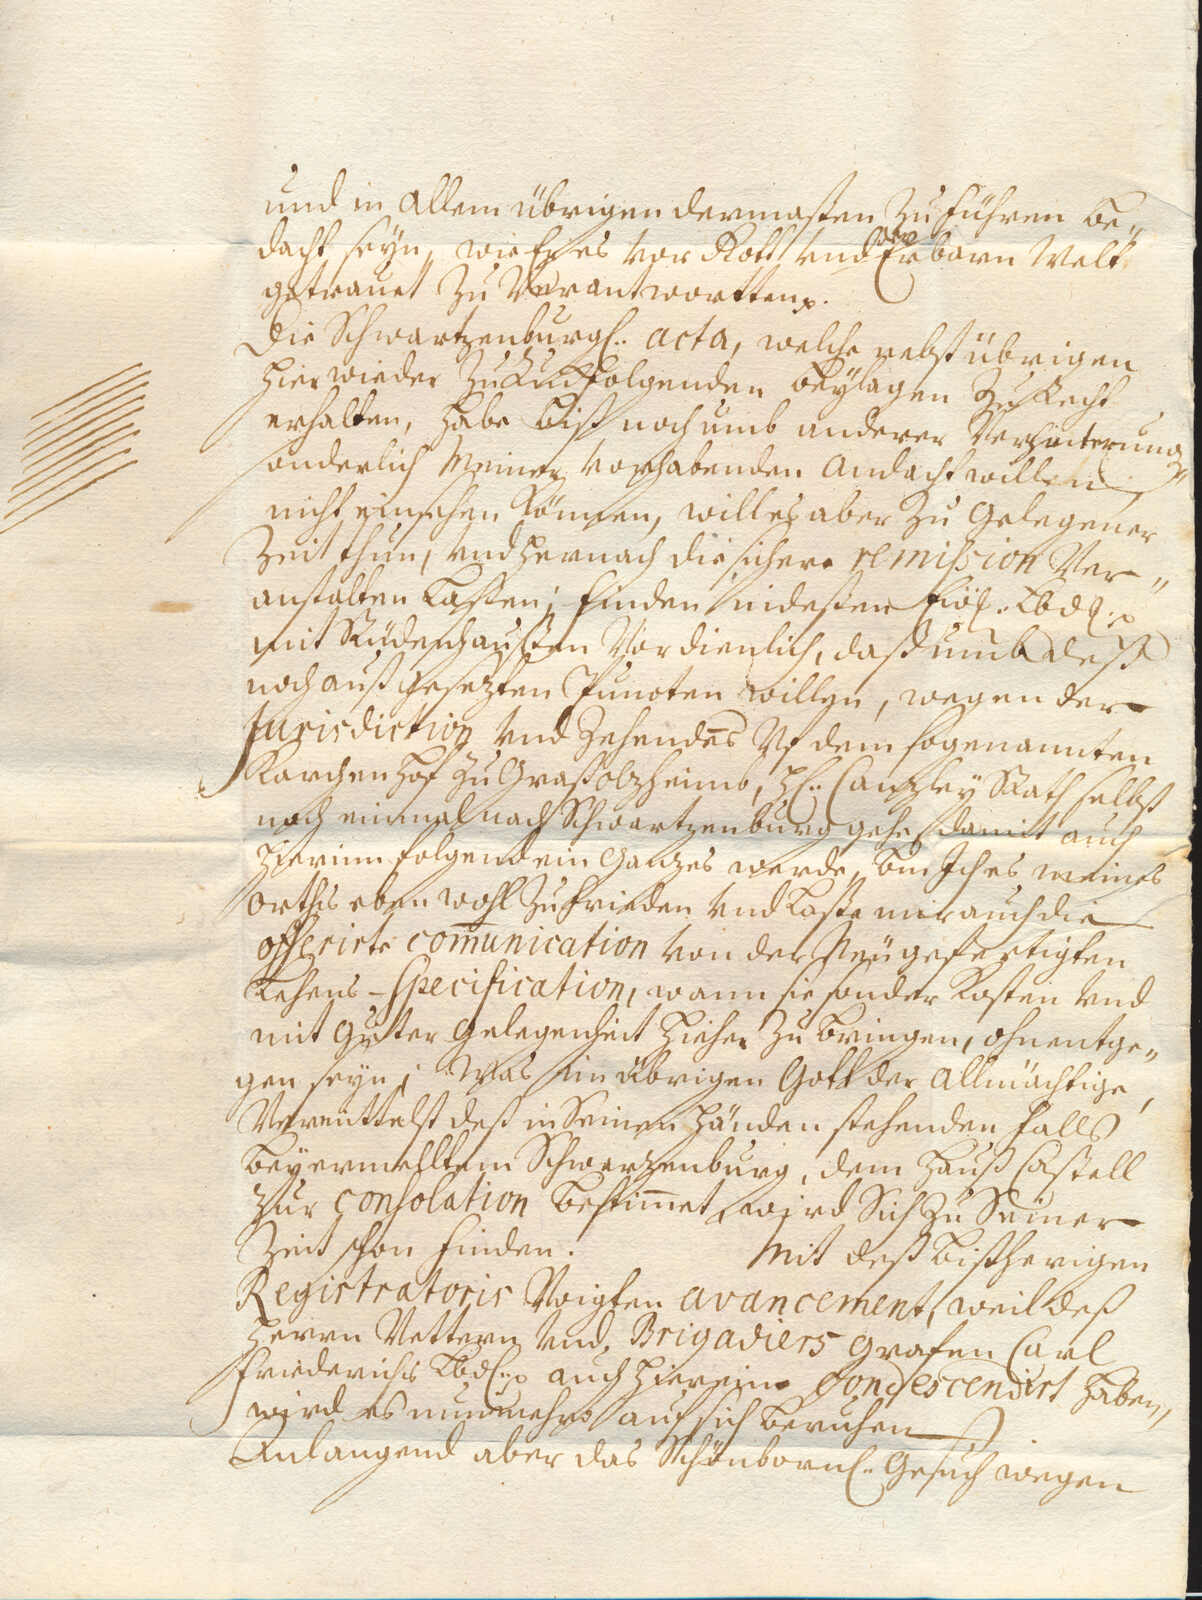 und in allem übrigen dermaßen zu führen be„
dacht seyn, wie Er es vor Gott und der Erbarn Welt
getrauet zu verantwortten.
Die Schwartzenburgl. acta, welche nebst übrigen
hier wieder zurückfolgenden Beylagen zu Recht
erhalten, habe biß noch umb anderer Verhinterung
sonderlich meiner vorhabenden Andacht willen,
nicht einsehen können, will es aber zu gelegener
Zeit thun, und hernach die sichere remission ver„
anstalten laßen; finden indeßen Lbd.
mit Rüdenhaußen vor dienlich, daß umb deß
noch außgesezten Puncten willen, wegen der
Jurisdiction und Zehendens uf dem sogenannten
Karchenhof zu Graßolzheimb, H. Canzley Rath selbst
noch einmal nach Schwartzenburg gehe, damit auch
hierinn folgend ein Ganzes werde, bin Ich es meines
Orths eben wohl zu frieden und laße mir auch die
offerirte com̄unication von der Neügefertigten
Lehens-Specification, wann sie sonder Kosten und
mit guter Gelegenheit hieher zu bringen, ohnentge„
gen seyn; Was im übrigen Gott der Allmächtige,
Vermittelst deß in Seinen Händen stehenden Falls
bey ermelltem Schwarzenburg, dem Hauß Castell
zur consolation bestim̄et, wird Sich zu Seiner
Zeit schon finden. Mit deß bißherigen
Registratoris Voigten avancement, weil deß
Herrn Vettern und Brigadiers Grafen Carl
Friederichs Lbd. auch hierein condescendirt haben,
wird es nunmehro auf sich beruhen
Anlangend aber das Schönbornl. Gesuch wegen